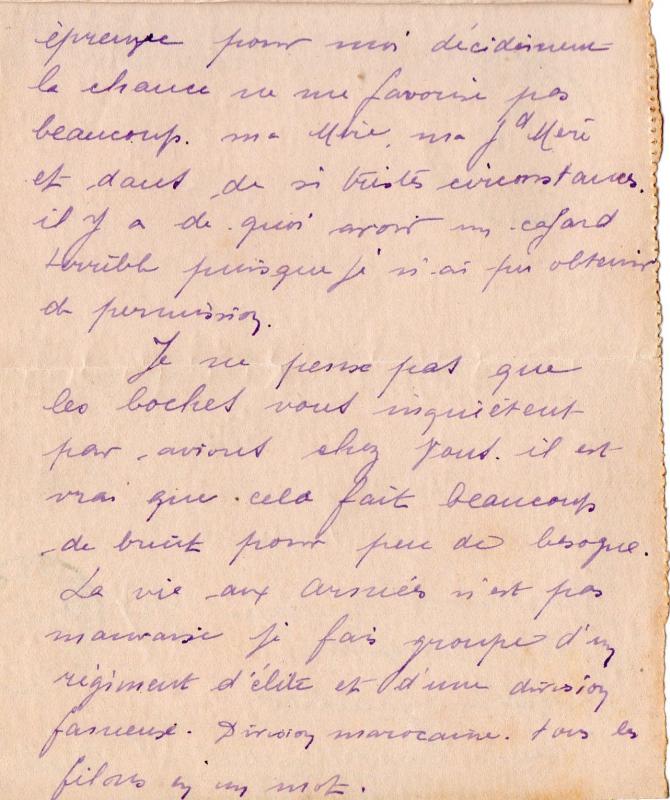 épreuve pour moi décidément
la chance ne me favorise pas
beaucoup. ma Mère, ma Gd Mère
et dans de si tristes circonstances.
il y a de quoi avoir un cafard
terrible puisque je n'ai pu obtenir
de permission.
Je ne pense pas que
les boches vous inquiètent
par avions chez vous. il est
vrai que cela fait beaucoup
de bruit pour peu de besogne.
La vie aux armées n'est pas
mauvaise je fais groupe d'un
régiment d'élite et d'une division
fameuse. Division marocaine. tous les
filons en un mot.